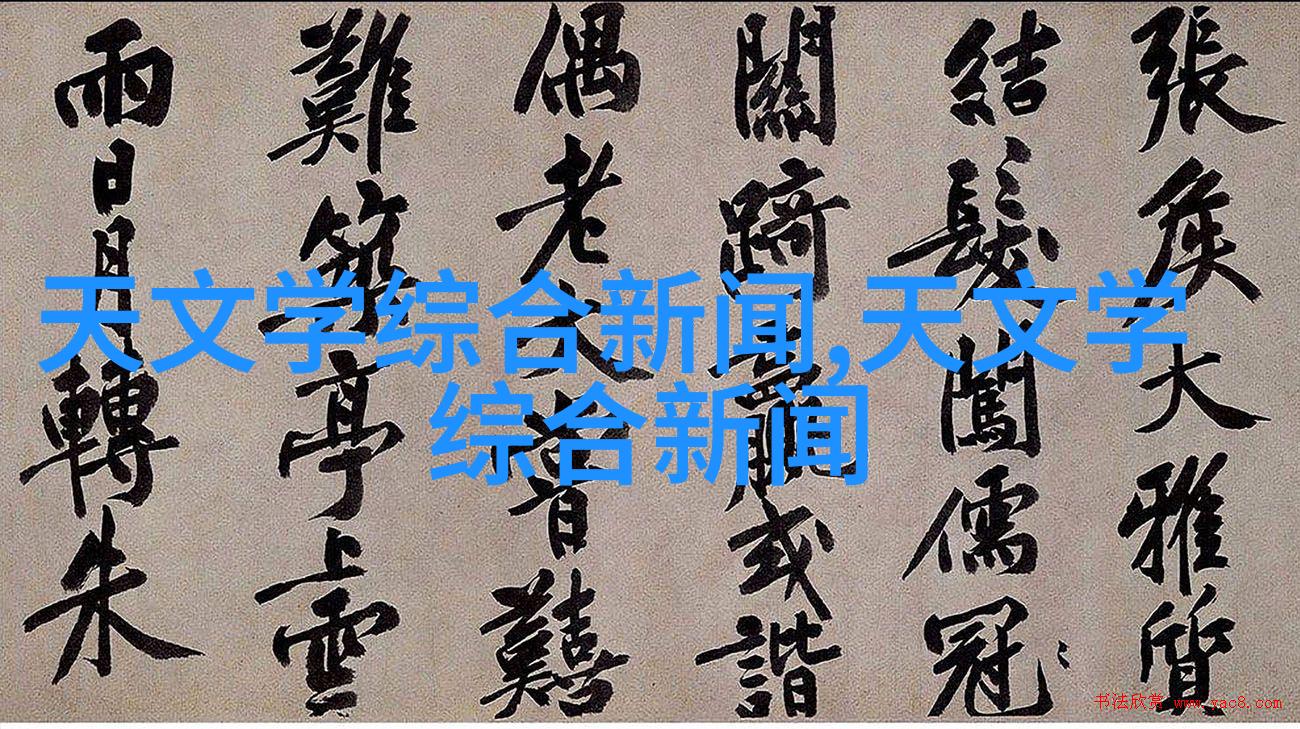 天文学综合新闻,天文学
综合新闻
張侯大雅質
結髮闖儒冠
關踦或諧
偶老大嘗囏
難築亭上雲
雨日月轉朱
书法欣赏 www.yac8.com